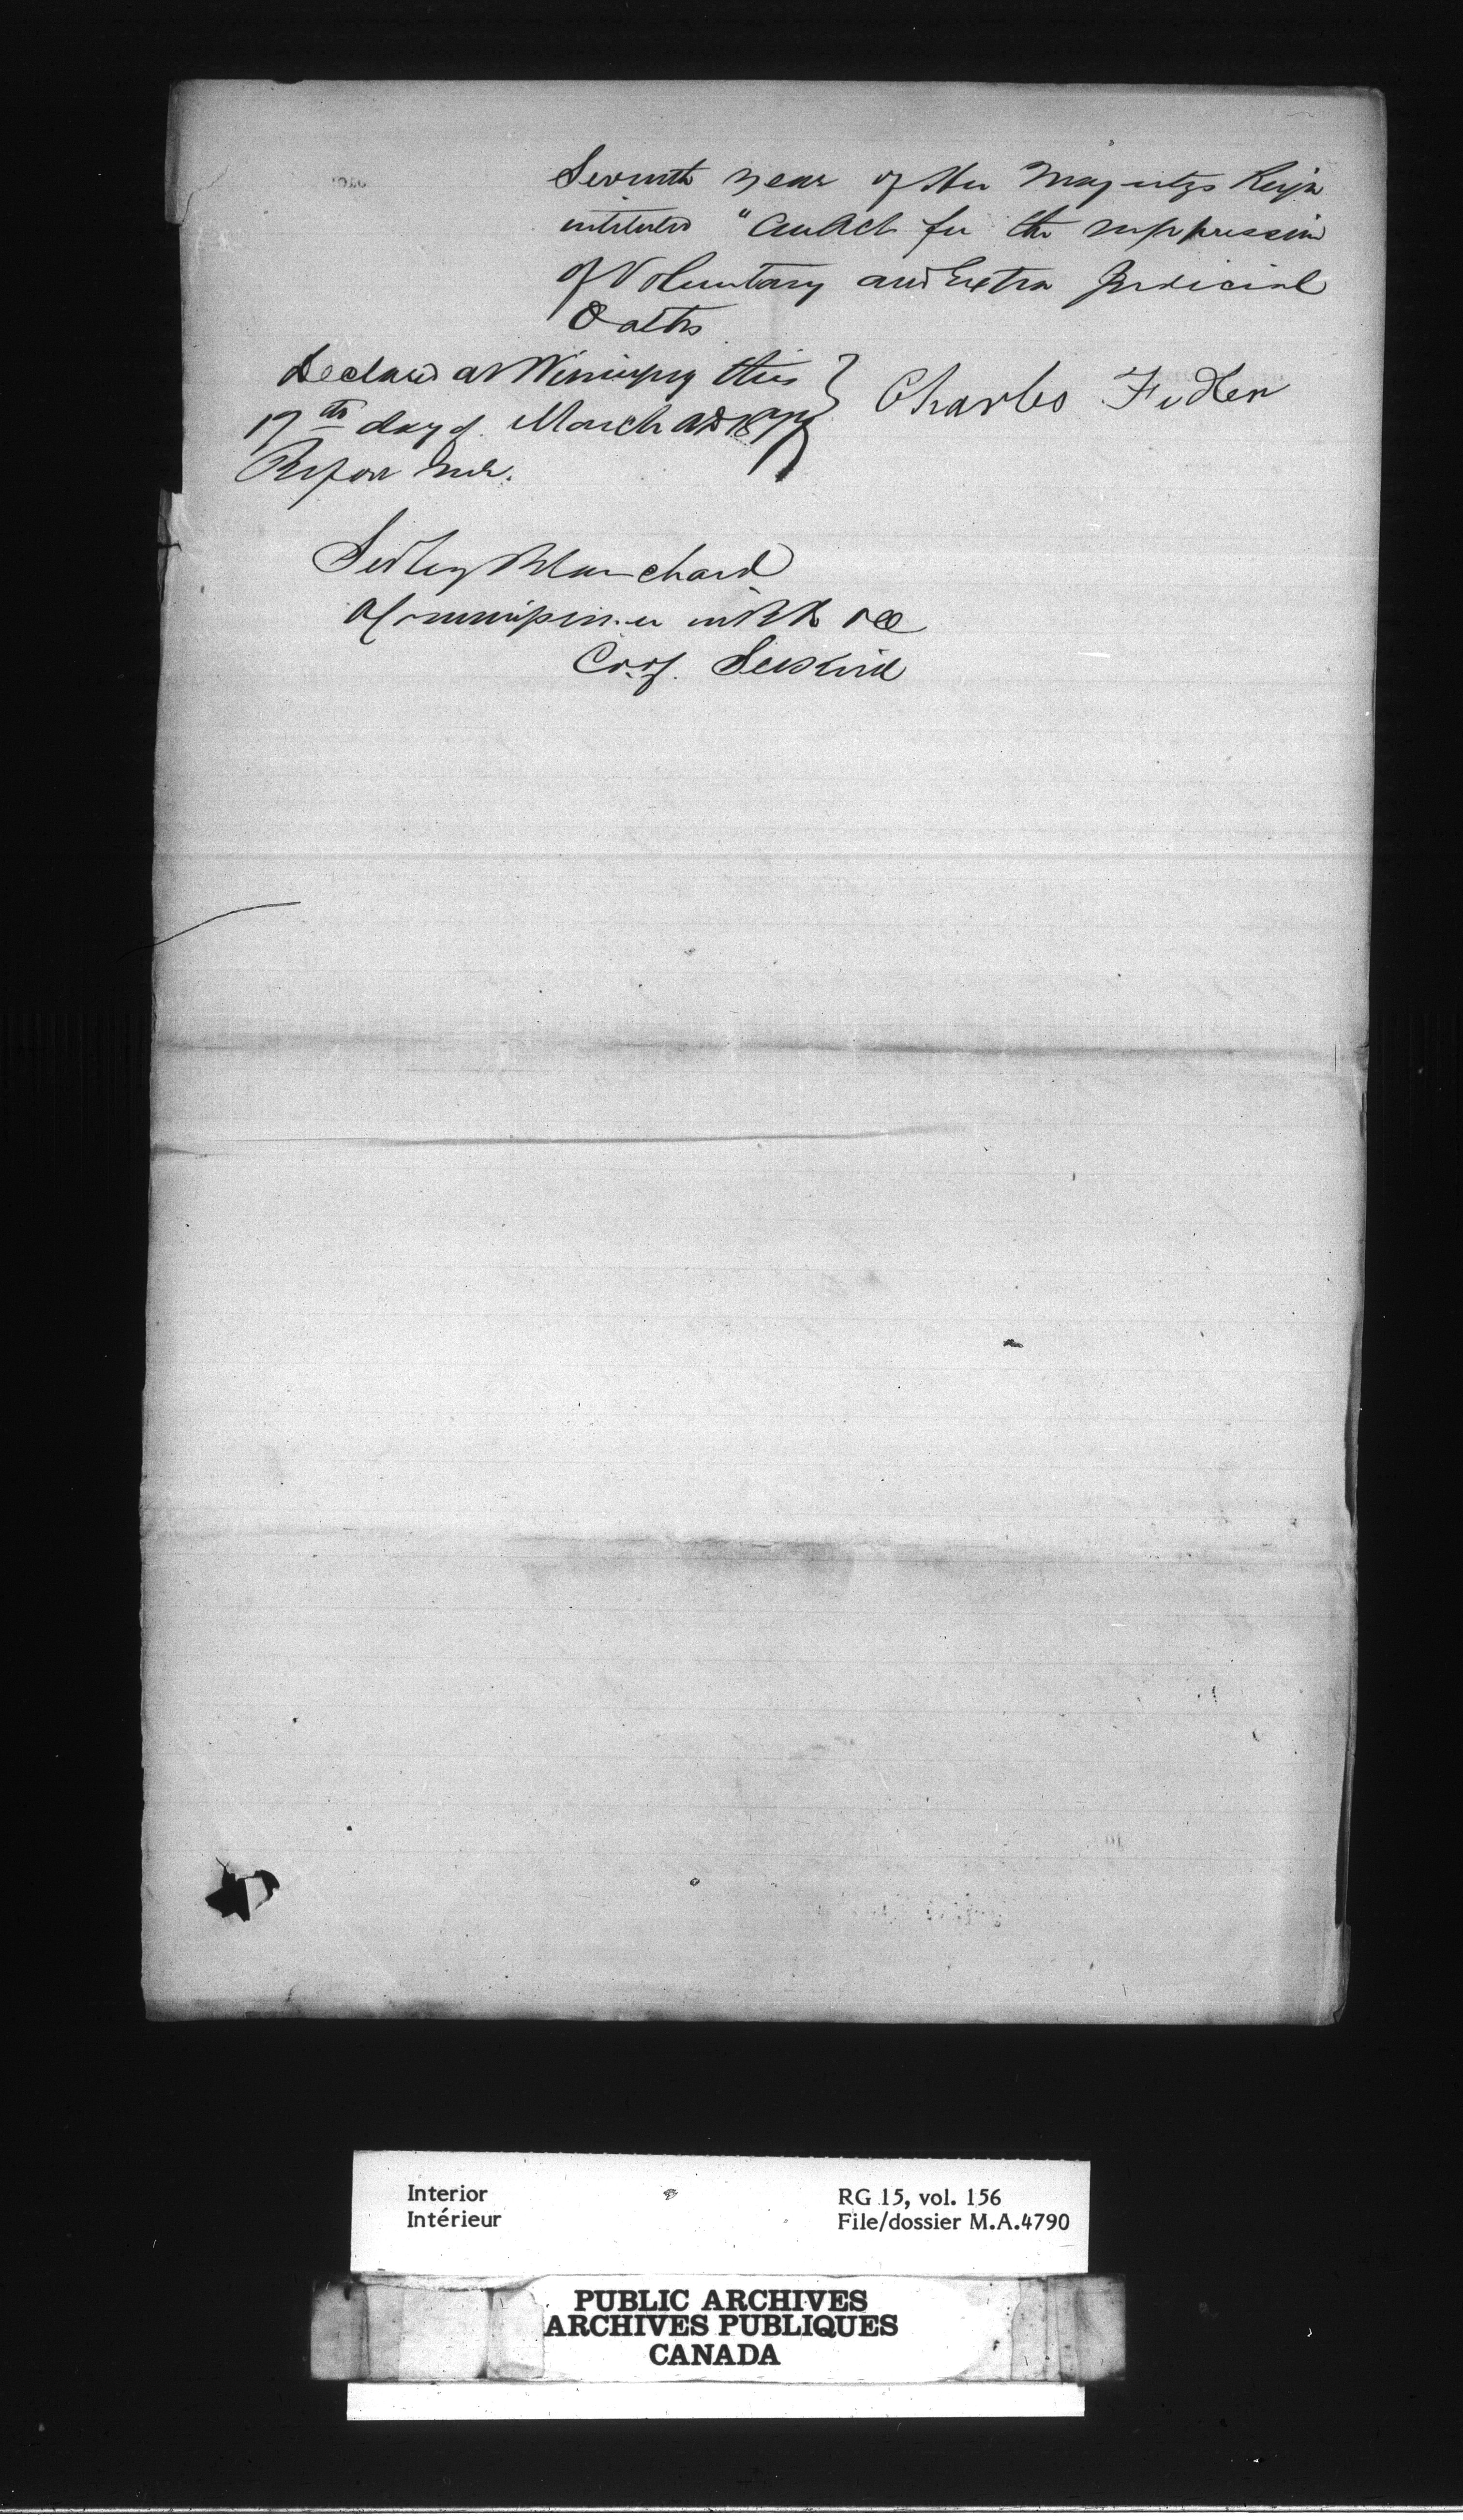 Seventh year of Her Majestys Reign
intituled "An Act for the suppression
of Voluntary and Extra Judicial
Oaths
Declared at Winnipeg this
17th day of March AD 187
Before me.
Charles Fidler
Sedley Blanchard
A Commissioner in B R &c
Co. of Selkirk
Interior
Intérieur
RG 15, vol. 156
File/dossier M.A.4790
PUBLIC ARCHIVES
ARCHIVES PUBLIQUES
CANADA